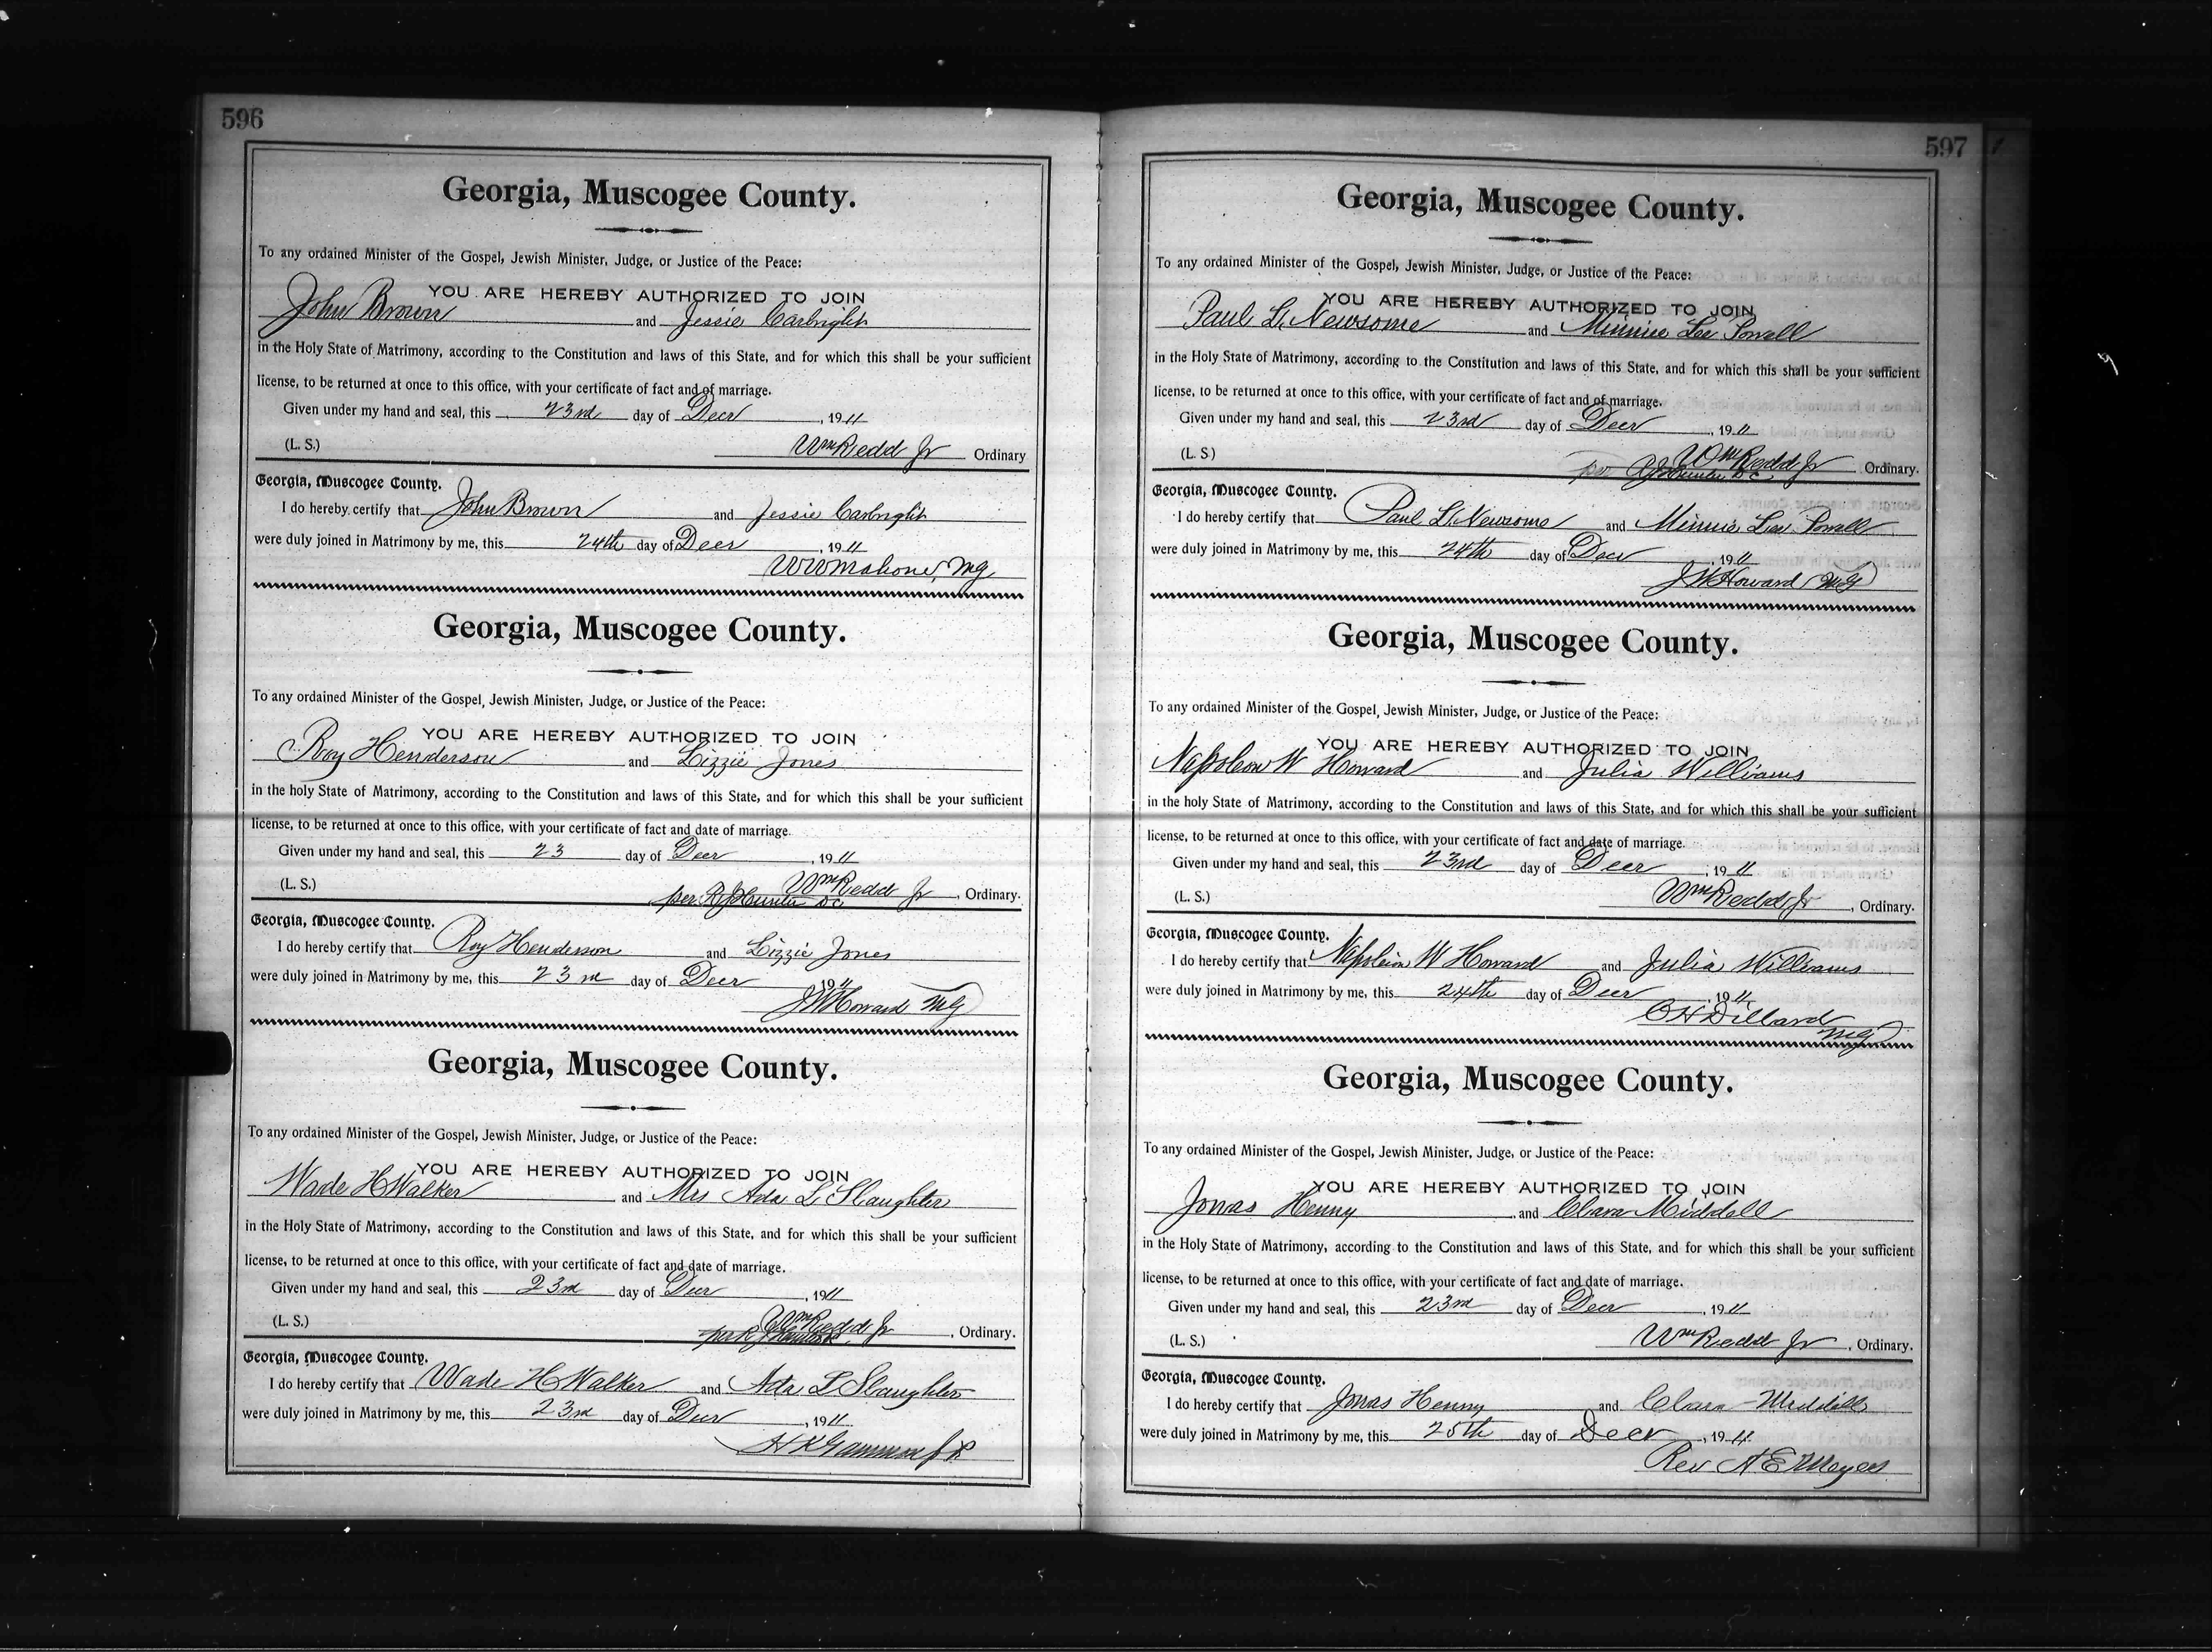 596
Georgia, Muscogee County.
To any ordained Minister of the Gospel, Jewish Minister, Judge, or Justice of the Peace:
YOU ARE HEREBY AUTHORIZED TO JOIN
John Brown and Jessie Carbright
in the Holy State of Matrimony, according to the Constitution and laws of this State, and for which this shall be your sufficient
license, to be returned at once to this office, with your certificate of fact and of marriage.
Given under my hand and seal, this 23rd day of Decr, 1911
(L. S.) Wm Redd Jr Ordinary
Georgia, Muscogee County.
I do hereby certify that John Brown and Jessie Carbright
were duly joined in Matrimony by me, this 24th day of Decr, 1911
WWMahone, Mg
Georgia, Muscogee County.
To any ordained Minister of the Gospel, Jewish Minister, Judge, or Justice of the Peace:
YOU ARE HEREBY AUTHORIZED TO JOIN
Roy Henderson and Lizzie Jones
in the holy State of Matrimony, according to the Constitution and laws of this State, and for which this shall be your sufficient
license, to be returned at once to this office, with your certificate of fact and date of marriage.
Given under my hand and seal, this 23 day of Decr, 1911
(L. S.) Wm Redd Jr, Ordinary.
per R J Hunter DC
Georgia, Muscogee County.
I do hereby certify that Roy Henderson and Lizzie Jones
were duly joined in Matrimony by me, this 23rd day of Decr, 1911
JWHoward MG
Georgia, Muscogee County.
To any ordained Minister of the Gospel, Jewish Minister, Judge, or Justice of the Peace:
YOU ARE HEREBY AUTHORIZED TO JOIN
Wade H Walker and Mrs Ada L Slaughter
in the Holy State of Matrimony, according to the Constitution and laws of this State, and for which this shall be your sufficient
license, to be returned at once to this office, with your certificate of fact and date of marriage.
Given under my hand and seal, this 23rd day of Decr, 1911
(L. S.) Wm Redd Jr, Ordinary.
Georgia, Muscogee County.
I do hereby certify that Wade H Walker and Ada L Slaughter
were duly joined in Matrimony by me, this 23rd day of Decr, 1911
597
Georgia, Muscogee County.
To any ordained Minister of the Gospel, Jewish Minister, Judge, or Justice of the Peace:
YOU ARE HEREBY AUTHORIZED TO JOIN
Paul L. Newsome and Minnie Lee Powell
in the Holy State of Matrimony, according to the Constitution and laws of this State, and for which this shall be your sufficient
license, to be returned at once to this office, with your certificate of fact and of marriage.
Given under my hand and seal, this 23rd day of Decr, 1911
(L. S) Wm Redd Jr Ordinary.
Georgia, Muscogee County.
I do hereby certify that Paul L. Newsome and Minnie Lee Powell
were duly joined in Matrimony by me, this 24th day of Decr, 1911
JWHoward (MG)
Georgia, Muscogee County.
To any ordained Minister of the Gospel, Jewish Minister, Judge, or Justice of the Peace:
YOU ARE HEREBY AUTHORIZED TO JOIN
Napoleon W Howard and Julia Williams
in the holy State of Matrimony, according to the Constitution and laws of this State, and for which this shall be your sufficient
license, to be returned at once to this office, with your certificate of fact and date of marriage.
Given under my hand and seal, this 23rd day of Decr, 1911
(L. S.) Wm Redd Jr, Ordinary.
Georgia, Muscogee County.
I do hereby certify that Napoleon W Howard and Julia Williams
were duly joined in Matrimony by me, this 24th day of Decr, 1911
CHDillard
MG
Georgia, Muscogee County.
To any ordained Minister of the Gospel, Jewish Minister, Judge, or Justice of the Peace:
YOU ARE HEREBY AUTHORIZED TO JOIN
Jonas Henny and Clara Middell
in the Holy State of Matrimony, according to the Constitution and laws of this State, and for which this shall be your sufficient
license, to be returned at once to this office, with your certificate of fact and date of marriage.
Given under my hand and seal, this 23rd day of Decr, 1911
(L. S.) Wm Redd Jr, Ordinary.
Georgia, Muscogee County.
I do hereby certify that Jonas Henny and Clara
were duly joined in Matrimony by me, this 25th day of Decr, 1911.
Rev AEMeyers